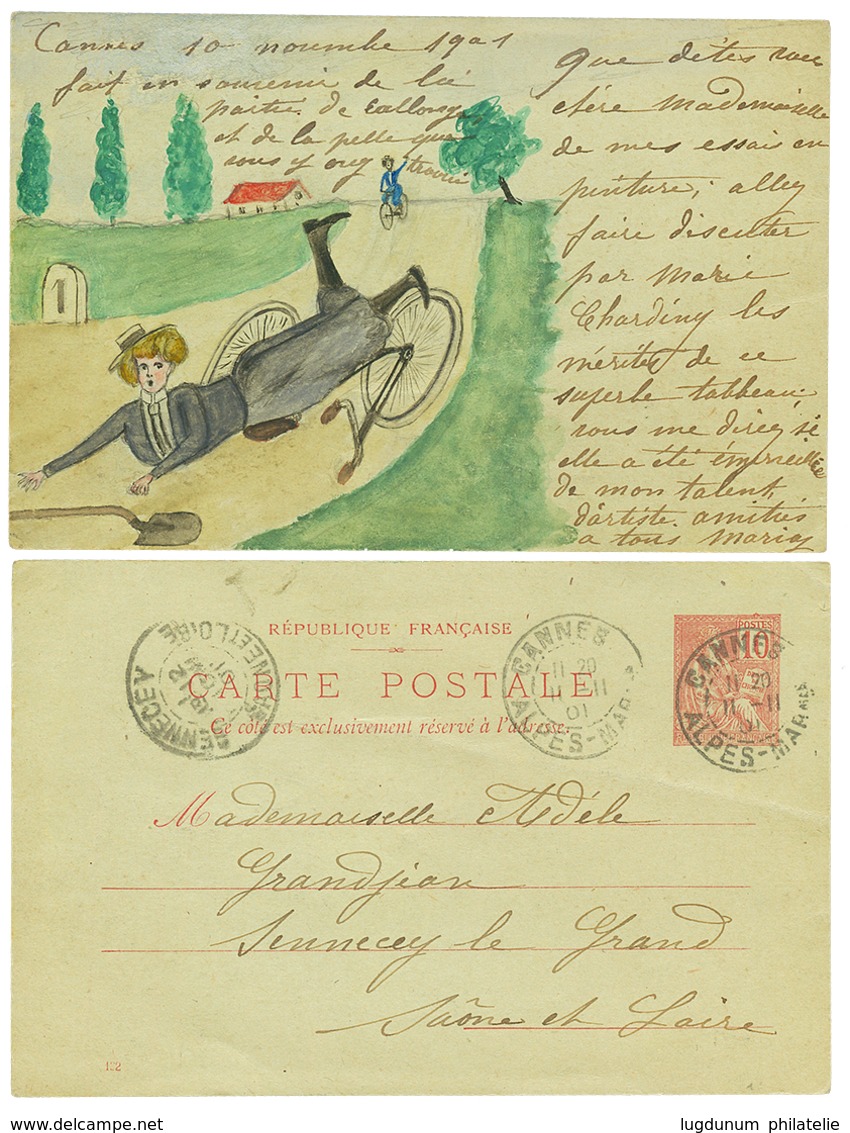 Cannes 10 novembre 1901
fait en souvenir de la
partie de
et de la pelle que
vous y
Que dites vous
chère Mademoiselle
de mes essais en
peinture, allez
faire discuter
par Marie
Chardiny les
mérites de ce
superbe tableau,
vous me direz si
elle a été émerveillée
de mon talent
d'artiste. amitiés
a tous
1
RÉPUBLIQUE FRANÇAISE
CARTE POSTALE
Ce côté est exclusivement réservé à l'adresse.
POSTES
10
CANNES
11 20
11 -11
01
ALPES-MARMES
CANNES
11 20
11 -11
01
ALPES-MAR
SENNECEY
SAONE ET LOIRE
Mademoiselle Adèle
Grandjean
Sennecey le Grand
Saône et Loire
132
www.delcampe.net
lugdunum philatelie